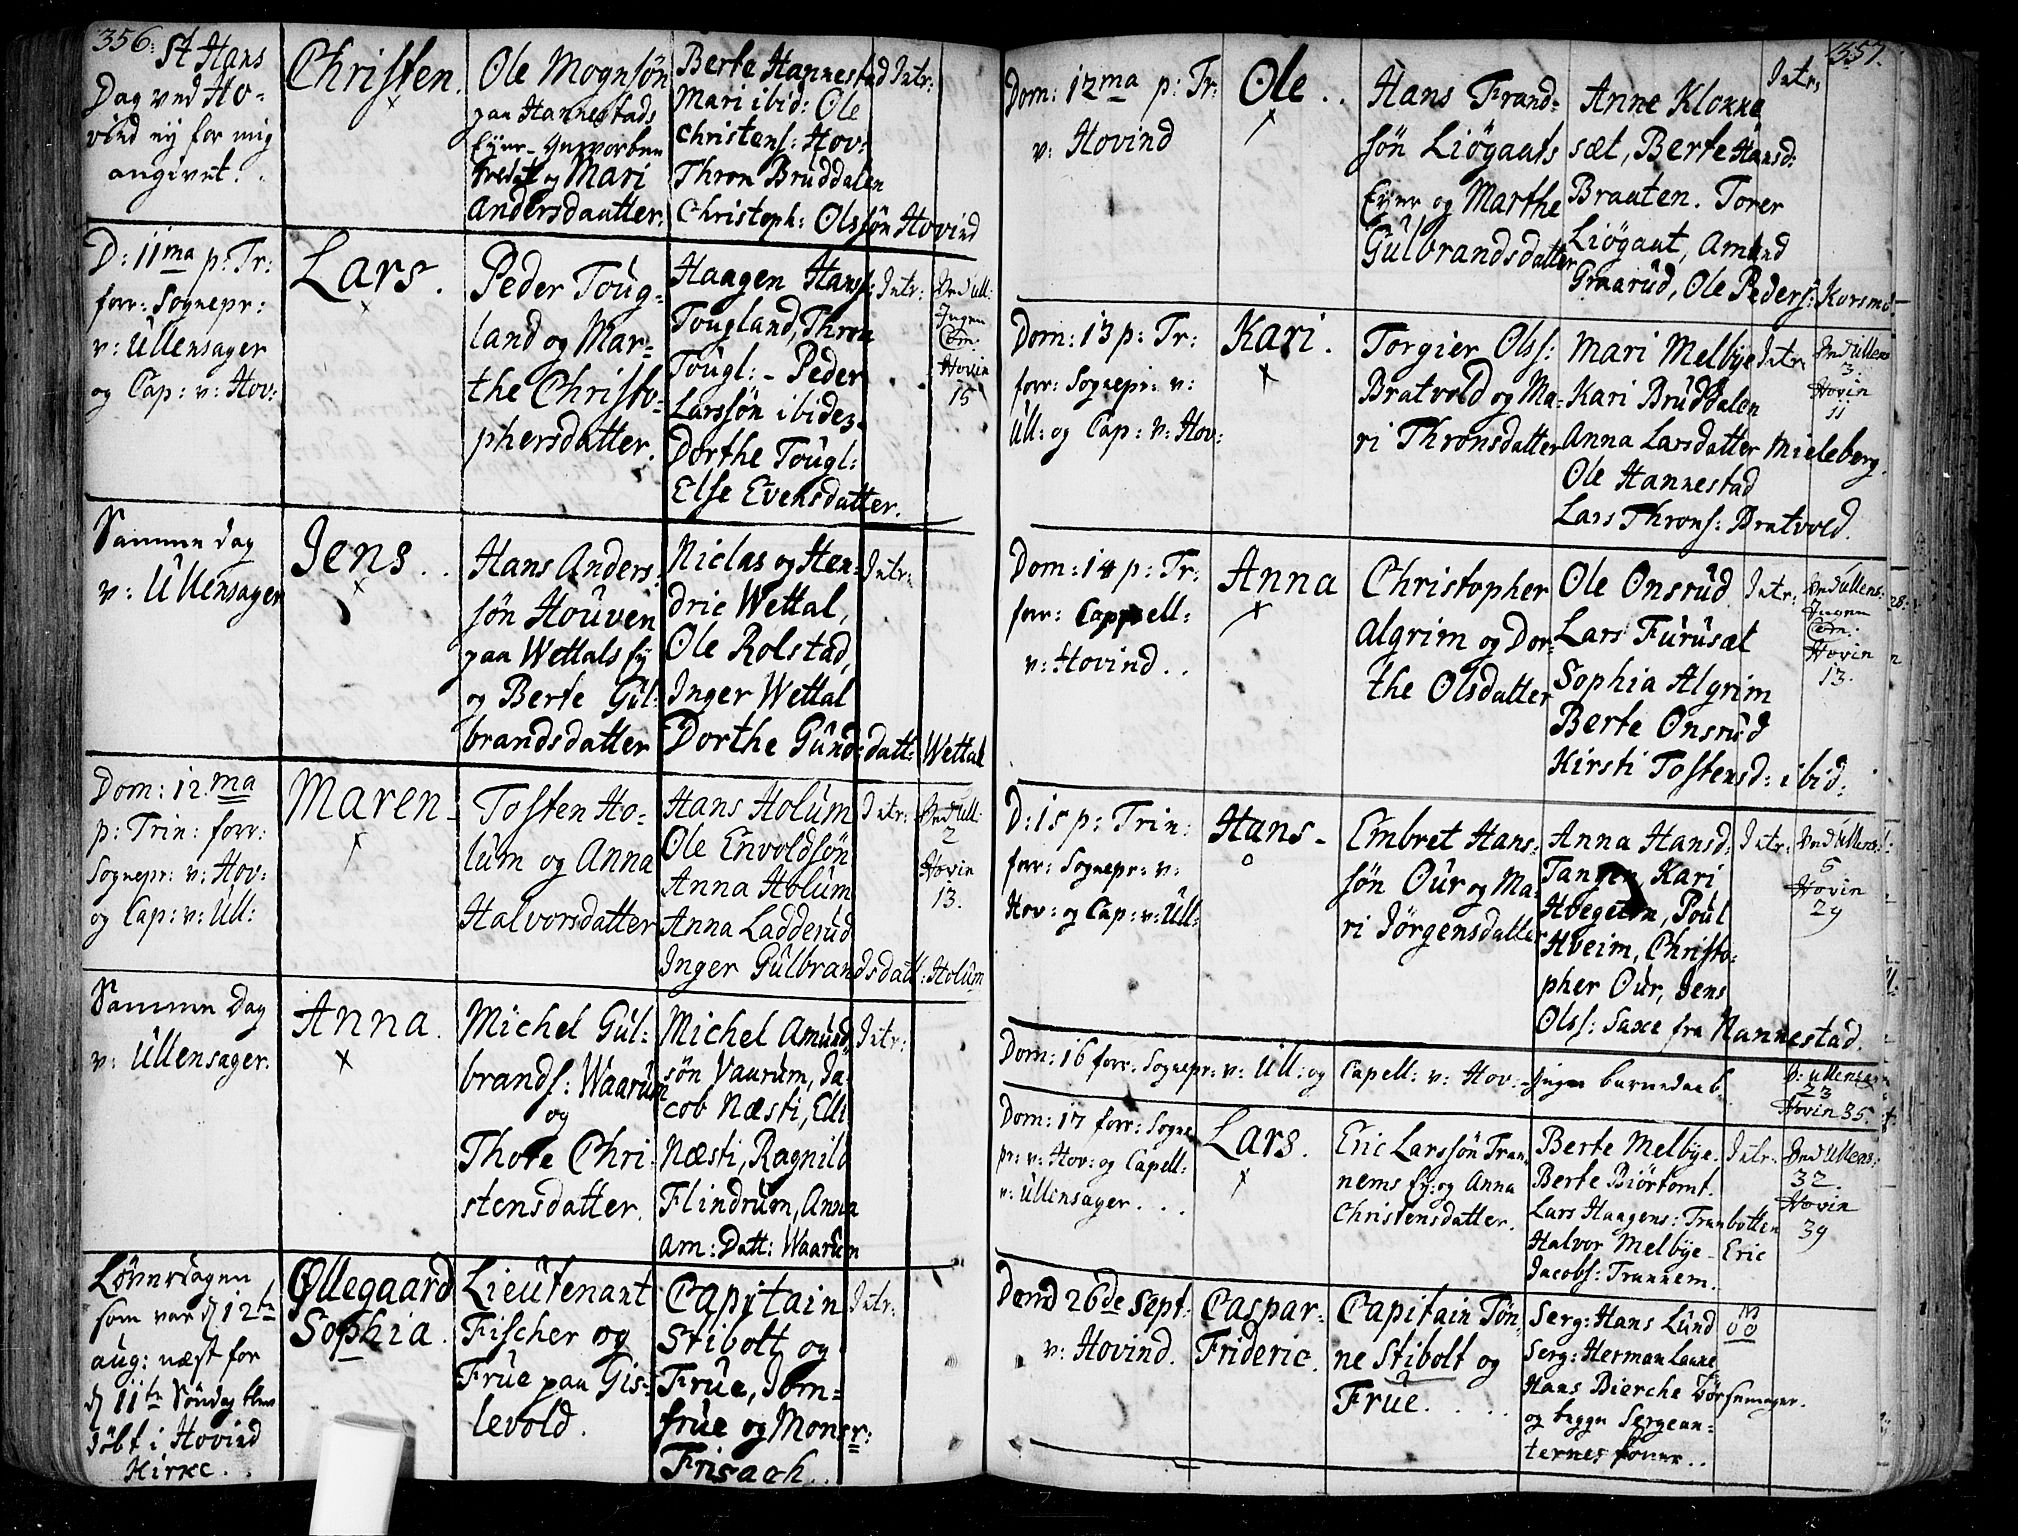 356:
St Hans
Dag ved Ho-
vind ey for mig
angivet.
Christen.
Ole Mognsøn
paa Hannestads
Eyer
og Mari
Andersdaatter.
Berte Hannestad
Mari ibid: Ole
Christens: Hov:
Thron Bruddalen
Christoph: Olssøn Hovind
Intr:
D: 11ma p: Tr:
forr: Sognepr:
v: Ullensager
og Cap: v: Hov:
Lars.
Peder Toug-
land og Mar-
the Christo-
phersdatter.
Haagen Hanss:
Tougland, Thron
Tougl: - Peder
Larssøn ibidem
Dorthe Tougl:
Else Evensdatter.
Intr:
Ved Ull:
Ingen
Com:
Hovin
15
Samme dag
v: Ullensager
Jens..
Hans Anders-
søn Houven
paa Wettals Ey
og Berte Gul-
brandsdatter
Niclas og Hen-
dric Wettal,
Ole Rolstad,
Inger Wettal
Dorthe Gundsdatt: Wettal
Intr:
Dom: 12.ma
p: Trin: forr:
Sognepr: v: Hov:
og Cap: v: Ull:
Maren-
Tosten Ho-
lum og Anna
Halvorsdatter
Hans Holum
Ole Envoldsøn
Anna Holum
Anna Ladderud
Inger Gulbrandsdatt: Holum
Intr:
Ved Ull:
2
Hovin
13.
Samme Dag
v: Ullensager.
Anna.
Michel Gul-
brands: Waarum
og
Thore Chri-
stensdatter.
Michel Amund
søn Vaarum, Ja-
cob Næsti, Elli
Næsti, Ragnild
Flindrum, Anna
Am: Datt: Waarum
Intr:
Løverdagen
som var d 12te
aug: næst for
d 11te Søndag blev
døbt i Hovind
Kirke.
Øllegaard
Sophia.
Lieutenant
Fischer og
Frue paa Gis-
levold.
Capitain
Stibolt og
Frue, Jom-
frue og Monsr:
Frisach..
Intr:
357.
Dom: 12ma p: Tr:
v: Hovind
Ole..
Hans Frand-
søn Liøgaats
Eyer og Marthe
Gulbrandsdatter
Anne Klokke
sæt, Berte Hansd:
Braaten. Torer
Liøgaat, Amund
Graarud, Ole Peders: Korsmo-
Intr:
Dom: 13 p: Tr:
forr: Sognepr: v:
Ull: og Cap: v: Hov:
Kari.
Torgier Olss:
Bratvold og Ma-
ri Thronsdatter
Mari Melbye
Kari Bruddalen
Anna Larsdatter Mieleberg.
Ole Hannestad
Lars Throns: Bratvold.
Intr:
Ved Ullens
3.
Hovin
11
Dom: 14 p: Tr:
forr: Cappell:
v: Hovind..
Anna
Christopher
Algrim og Dor-
the Olsdatter
Ole Onsrud
Lars Furusæt
Sophia Algrim
Berte Onsrud
Kirsti Tostensd: ibid:
Intr:
Ved Ullens:
Ingen
Com:
Hovin
13.
D: 15 p: Trin:
forr: Sognepr: v:
Hov: og Cap: v: Ull:
Hans-
Embret Hans-
søn Our og Ma-
ri Jörgensdatter
Anna Hansd:
Tangen, Kari
Poul
Hveim, Christo-
pher Our, Jens
Olss: Saxe fra Nannestad.
Intr:
Ved Ullens:
5
Hovin
29
Dom: 16 forr. Sognepr: v: Ull: og Capell: v: Hov:-Ingen barnedaab.
V: Ullensag
23
Hovin 35.
Dom: 17 forr: Sogne
pr: v: Hov: og Capell:
v: Ullensager...
Lars.
Eric Larssøn Tran-
nems Ey: og Anna
Christensdatter.
Berte Melbye.
Berte Biörtomt.
Lars Haagens: Tranbotten
Halvor Melbye- Eric
Jacobs: Trannem.
Intr:
Ved Ullens:
32.
Hovin
39
Dend 26de Sept:
v: Hovind.
Caspar-
Frideric.
Capitain Tøn-
ne Stibolt og
Frue....
Serg: Hans Lund
Serg: Herman Lane
Hans Bierche Börsemager.
og begge Sergean-
ternes koner..